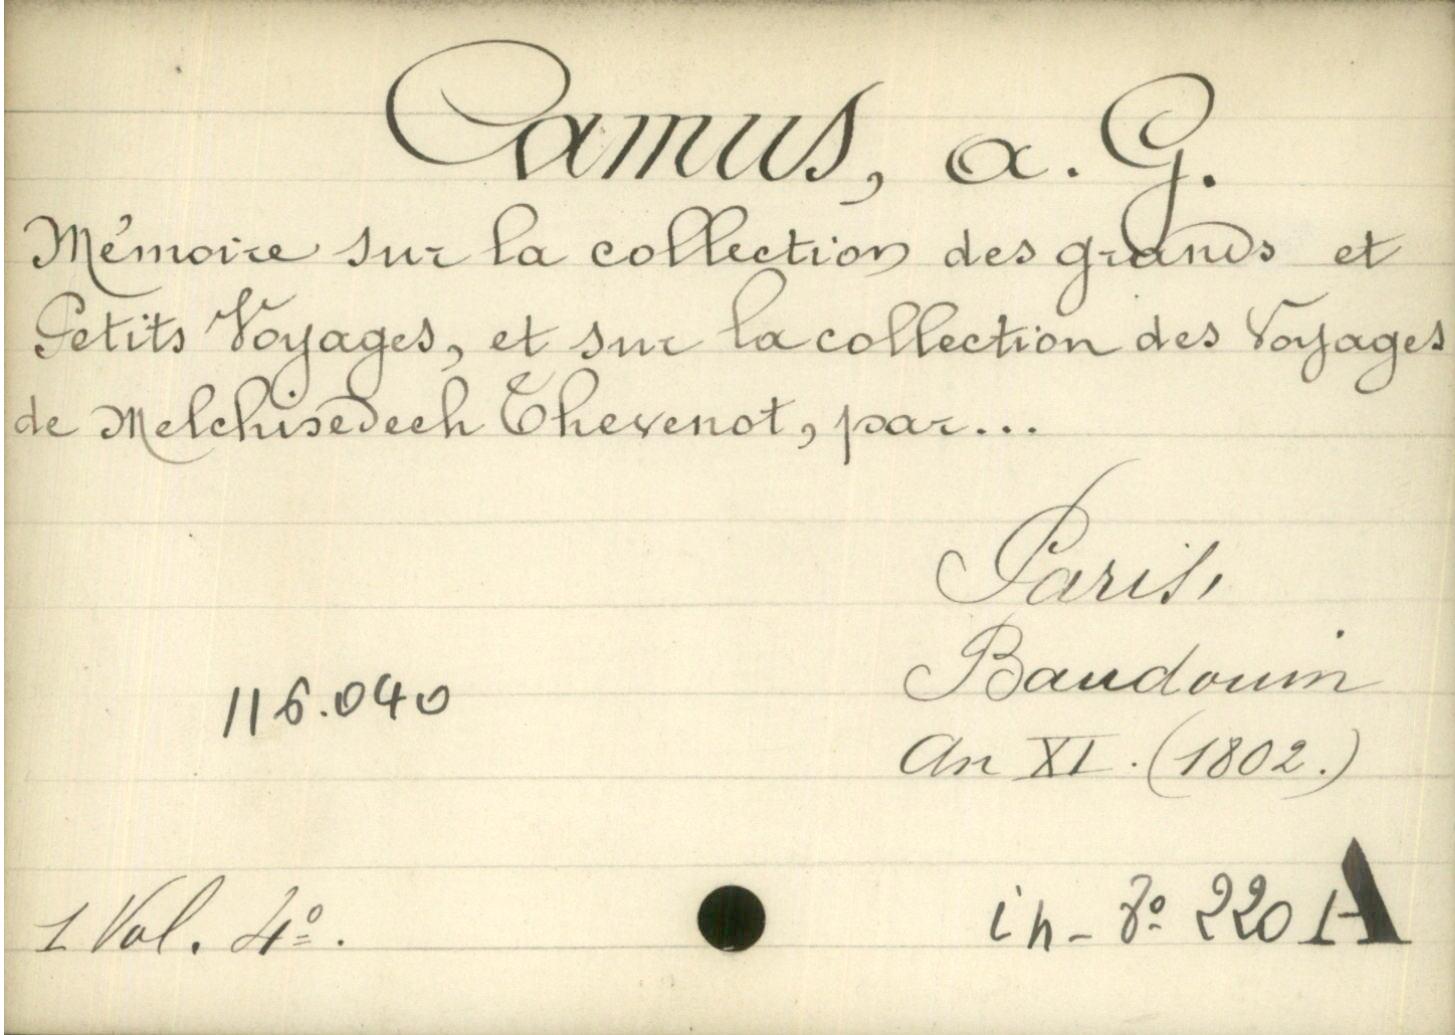 Camus, A. G.
Mémoire sur la collection des grands et
Petits Voyages, et sur la collection des Voyages
de Melchisedech Thevenot, par...
Paris,
Baudouin
116.040
An XI. (1802.)
1 Vol. 4º.
in-8º 220 A